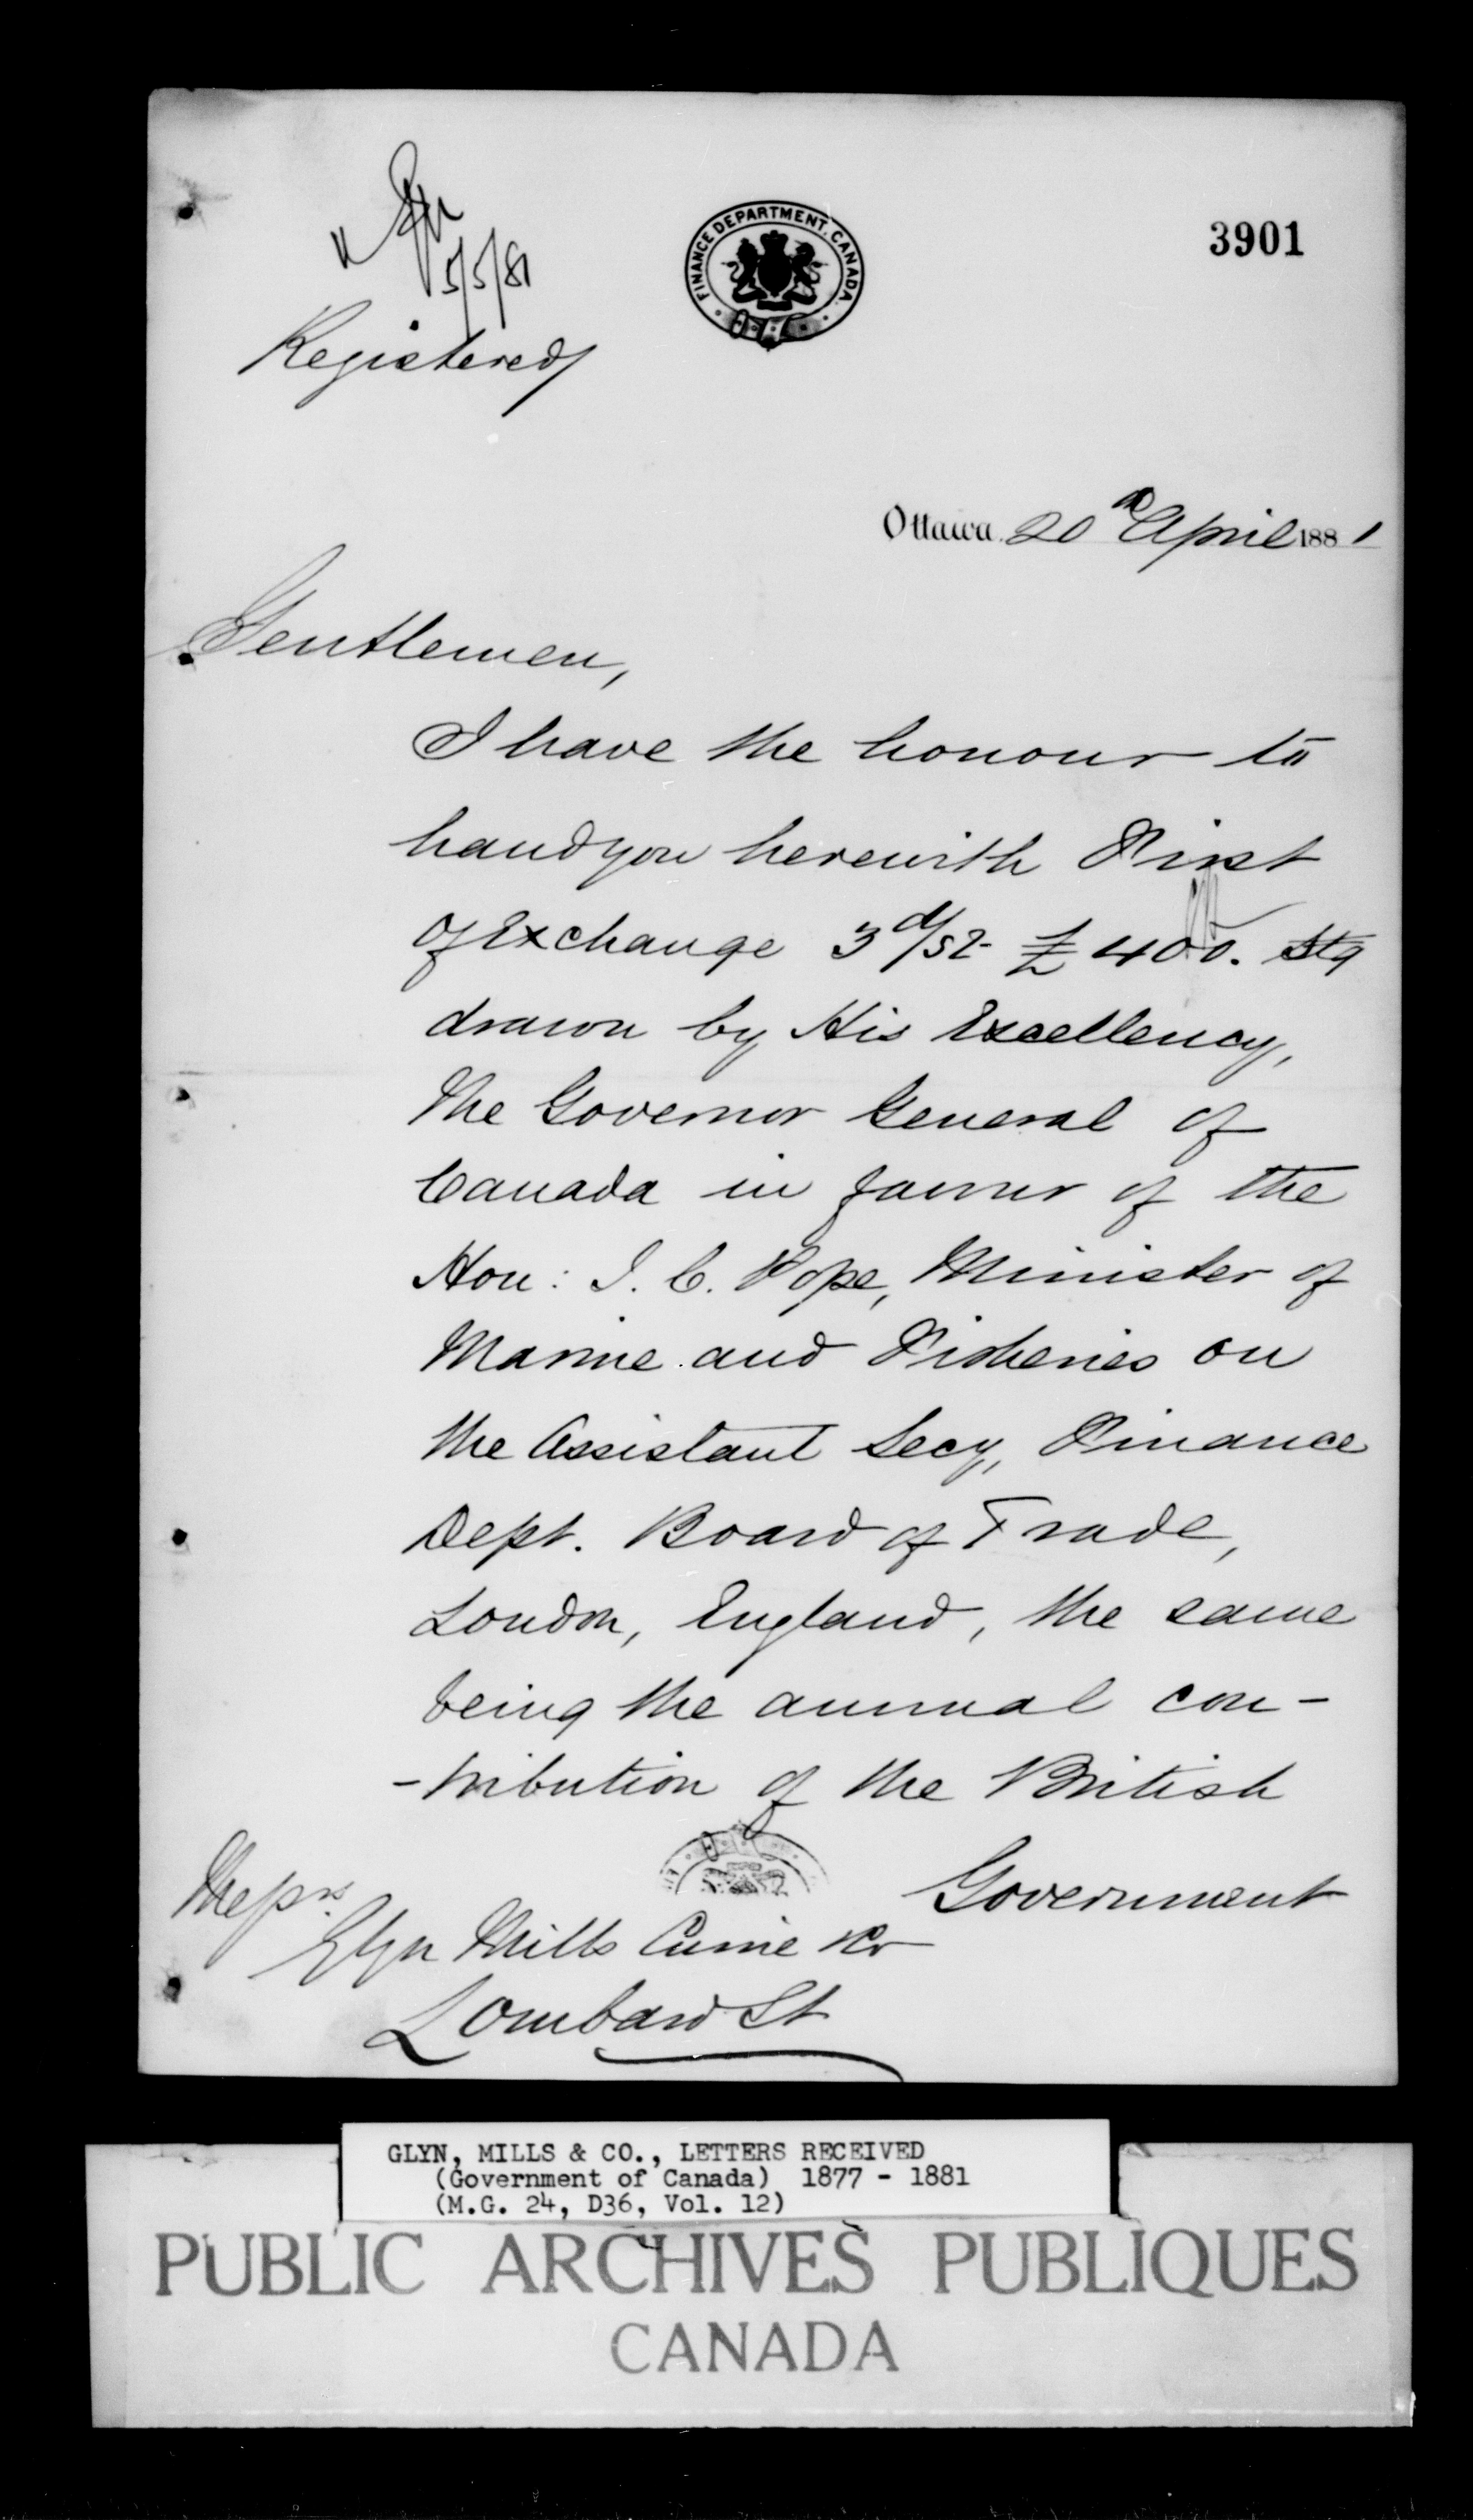 5/5/81
Registered
FINANCE DEPARTMENT, CANADA.
3901
Ottawa. 20th April 1881
Gentlemen,
I have the honour to
hand you herewith First
of Exchange 3 d/st £400. Stg
drawn by His Excellency,
the Governor General of
Canada in favour of the
Hon: J. C. Pope, Minister of
Marine and Fisheries on
the Assistant Secy, Finance
Dept. Board of Trade,
London, England, the same
being the annual con-
-tribution of the British
Government
Messrs.
Glyn Mills Currie & Co
Lombard St
GLYN, MILLS & CO., LETTERS RECEIVED
(Government of Canada) 1877 - 1881
(M.G. 24, D36, Vol. 12)
PUBLIC ARCHIVES PUBLIQUES
CANADA